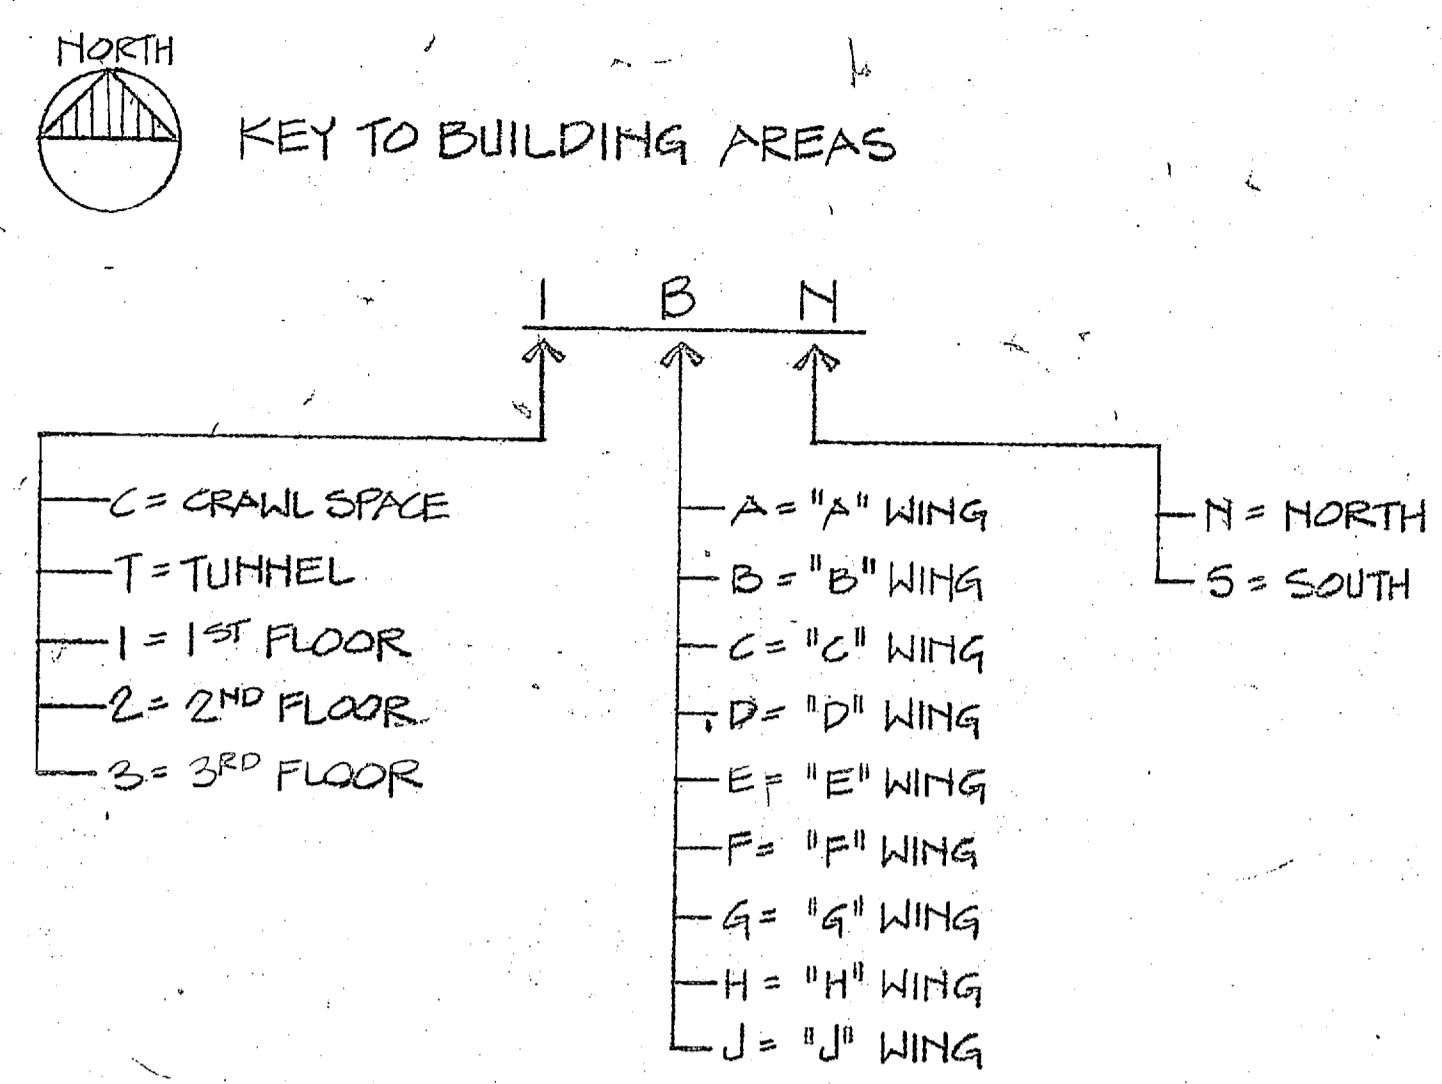 NORTH
KEY TO BUILDING AREAS
1 B N
C = CRAWL SPACE
T = TUNNEL
1 = 1ST FLOOR
2 = 2ND FLOOR
3 = 3RD FLOOR
A = "A" WING
B = "B" WING
C = "C" WING
D = "D" WING
E = "E" WING
F = "F" WING
G = "G" WING
H = "H" WING
J = "J" WING
N = NORTH
S = SOUTH